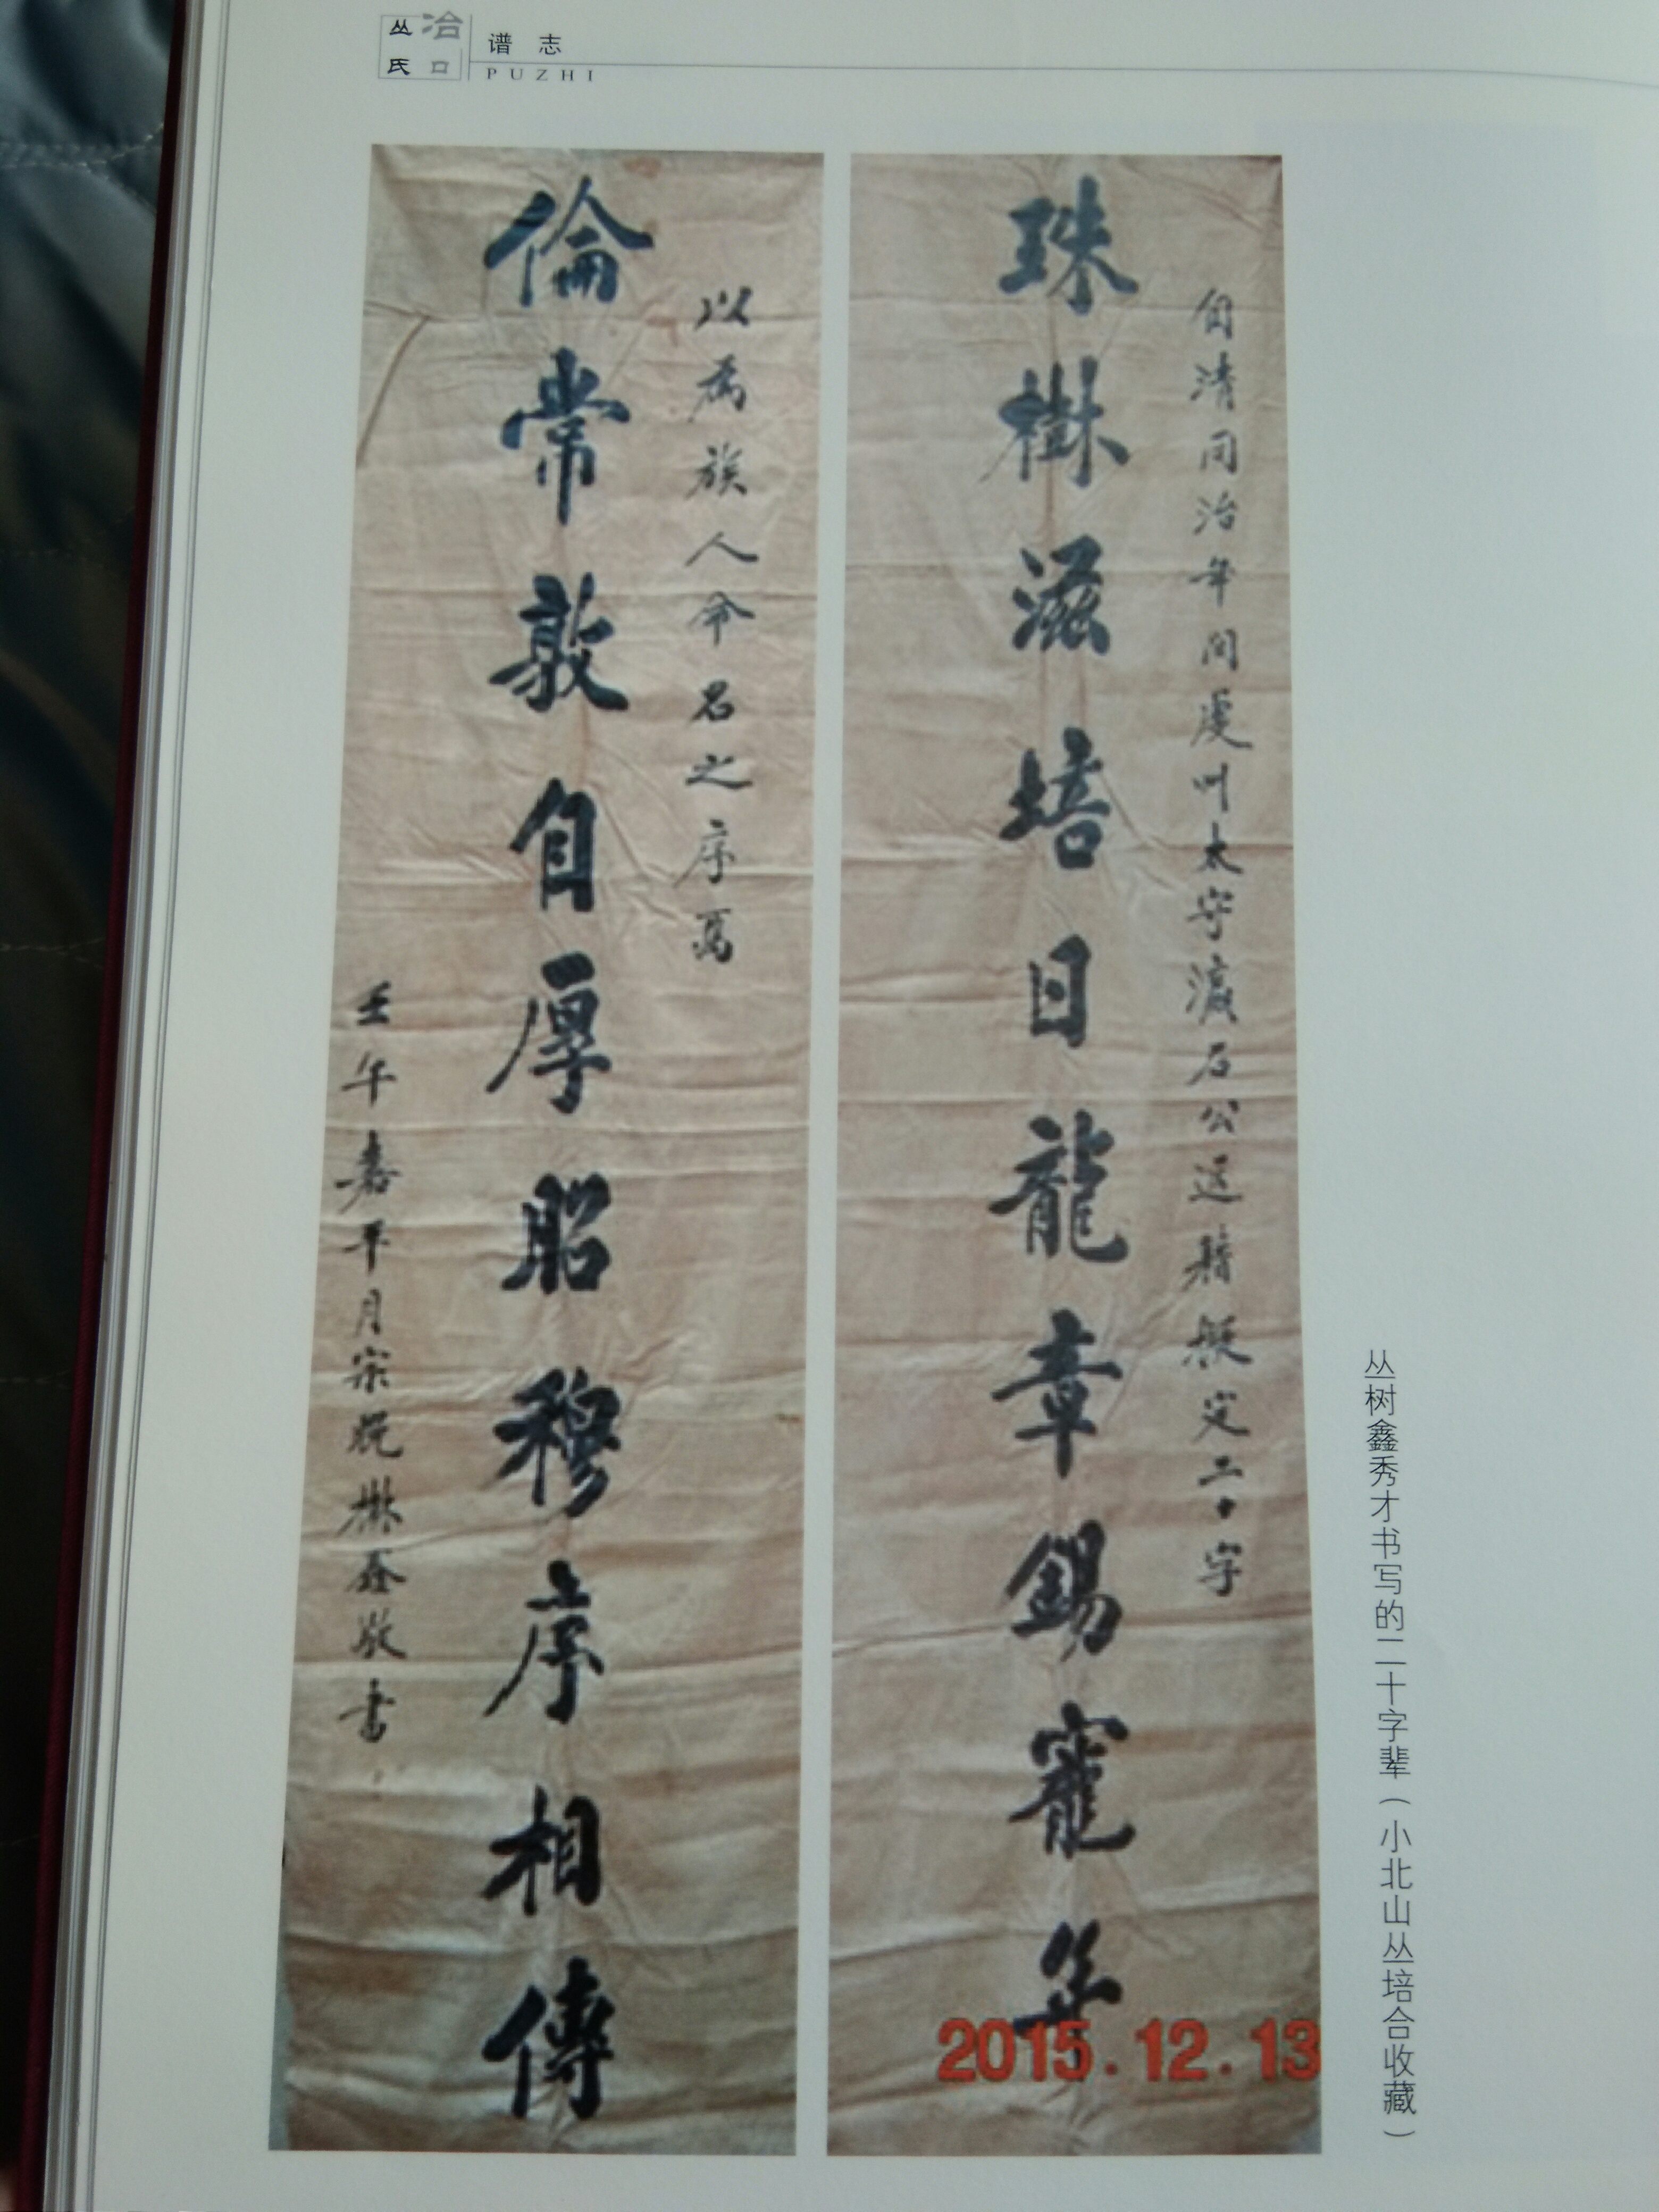 丛氏 冶口
谱志
PUZHI
自清同治年间虔州太守瀛石公送籍擬定二十字
珠樹滋培日龍章錫寵年
以為族人命名之序焉
倫常敦自厚昭穆序相傳
壬午嘉平月宗晚樹鑫敬書
2015.12.13
丛树鑫秀才书写的二十字辈(小北山丛培合收藏)